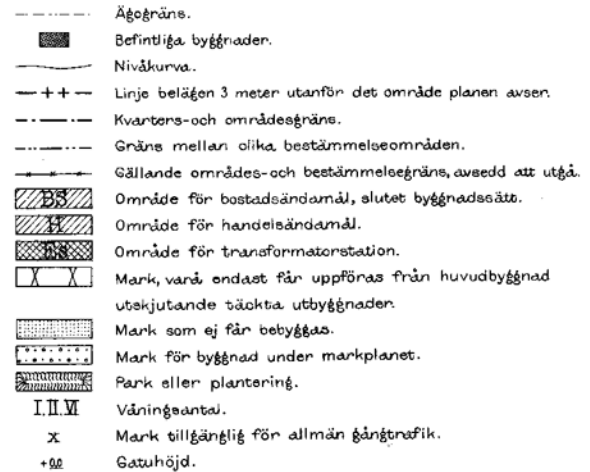 Ägogräns.
Befintliga byggnader.
Nivåkurva.
Linje belägen 3 meter utanför det område planen avser.
Kvarters-och områdesgräns.
Gräns mellan olika bestämmelseområden.
Gällande områdes-och bestämmelsegräns, avsedd att utgå.
BS Område för bostadsändamål, slutet byggnadssätt.
H Område för handelsändamål.
Es Område för transformatorstation.
Mark, varå endast får uppföras från huvudbyggnad
utskjutande täckta utbyggnader.
Mark som ej får bebyggas.
Mark för byggnad under markplanet.
Park eller plantering.
I.II.VI Våningsantal.
x Mark tillgänglig för allmän gångtrafik.
Gatuhöjd.